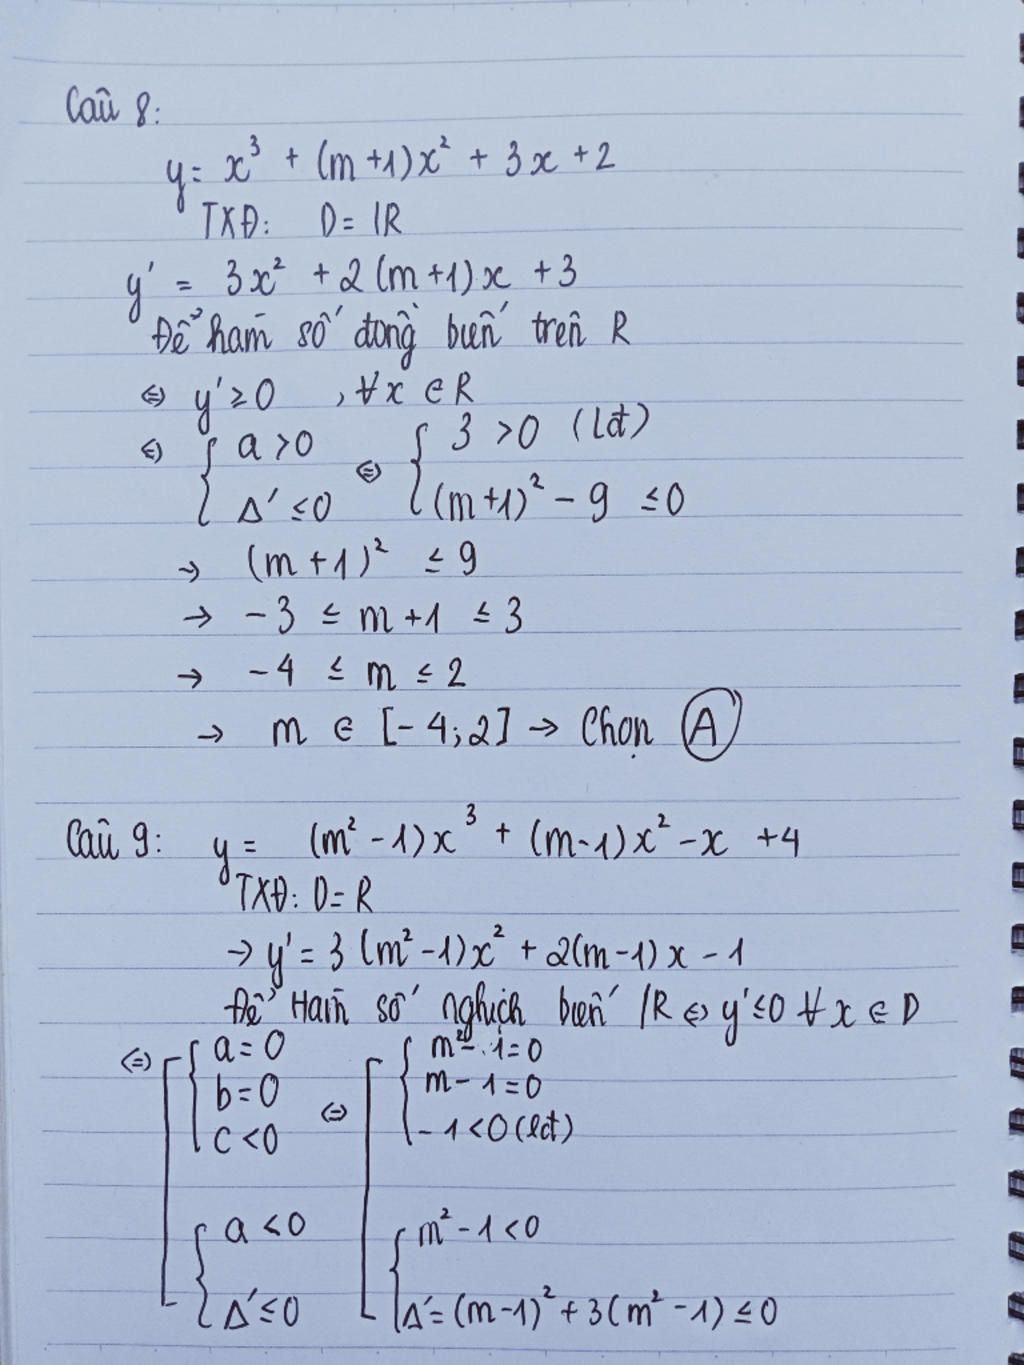 Câu 8:
y = x³ + (m+1)x² + 3x + 2
TXĐ: D = ℝ
y' = 3x² + 2(m+1)x + 3
Để hàm số đồng biến trên R
⇔ y' ≥ 0 , ∀x ∈ R
⇔ { a > 0 ⇔ { 3 > 0 (lđ)
Δ' ≤ 0 (m+1)² - 9 ≤ 0
→ (m+1)² ≤ 9
→ -3 ≤ m+1 ≤ 3
→ -4 ≤ m ≤ 2
→ m ∈ [-4;2] → Chọn A
Câu 9: y = (m²-1)x³ + (m-1)x² - x + 4
TXĐ: D = R
→ y' = 3(m²-1)x² + 2(m-1)x - 1
Để Hàm số nghịch biến ℝ ⇔ y' ≤ 0 ∀x ∈ D
⇔ [ { a = 0 [ { m² - 1 = 0
b = 0 ⇔ m - 1 = 0
c < 0 -1 < 0 (lđ)
{ a < 0 { m² - 1 < 0
Δ' ≤ 0 Δ' = (m-1)² + 3(m²-1) ≤ 0